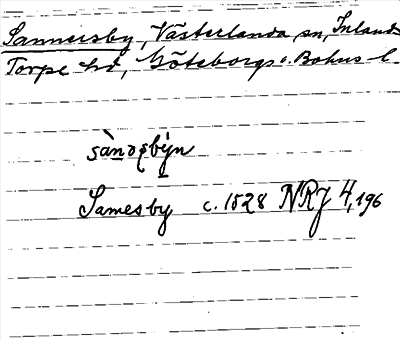 Sannersby, Västerlanda sn, Inlands
Torpe hd, Göteborgs o. Bohus l.
sànəʂbýn
Samesby c. 1528 NRJ 4, 196